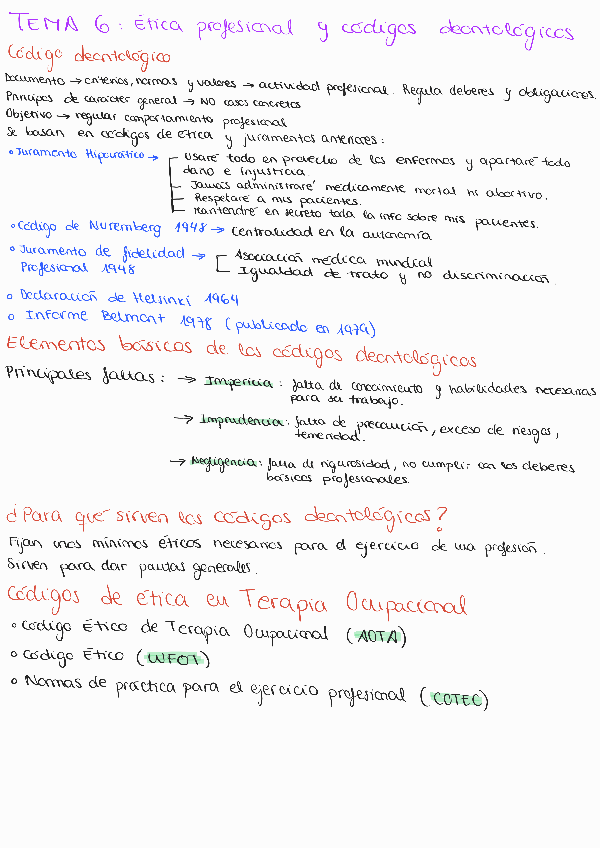 TEMA 6: Ética profesional y códigos deontológicos
Código deontológico
Documento → criterios, normas y valores → actividad profesional. Regula deberes y obligaciones.
Principios de carácter general → NO casos concretos
Objetivo → regular comportamiento profesional
Se basan en códigos de ética y juramentos anteriores:
• Juramento Hipocrático → Usaré todo en provecho de los enfermos y apartaré todo
daño e injusticia.
Jamás administraré médicamente mortal ni abortivo.
Respetaré a mis pacientes.
Mantendré en secreto toda la info sobre mis pacientes.
• Código de Nuremberg 1948 → Centralidad en la autonomía
• Juramento de fidelidad → Asociación médica mundial
Profesional 1948 Igualdad de trato y no discriminación.
• Declaración de Helsinki 1964
• Informe Belmont 1978 (publicado en 1979)
Elementos básicos de los códigos deontológicos
Principales faltas: → Impericia: falta de conocimiento y habilidades necesarias
para su trabajo.
→ Imprudencia: falta de precaución, exceso de riesgos,
temeridad.
→ Negligencia: falta de rigurosidad, no cumplir con los deberes
básicos profesionales.
¿Para qué sirven los códigos deontológicos?
Fijan unos mínimos éticos necesarios para el ejercicio de una profesión.
Sirven para dar pautas generales.
Códigos de ética en Terapia Ocupacional
• Código Ético de Terapia Ocupacional (AOTA)
• Código Ético (WFOT)
• Normas de práctica para el ejercicio profesional (COTEC)